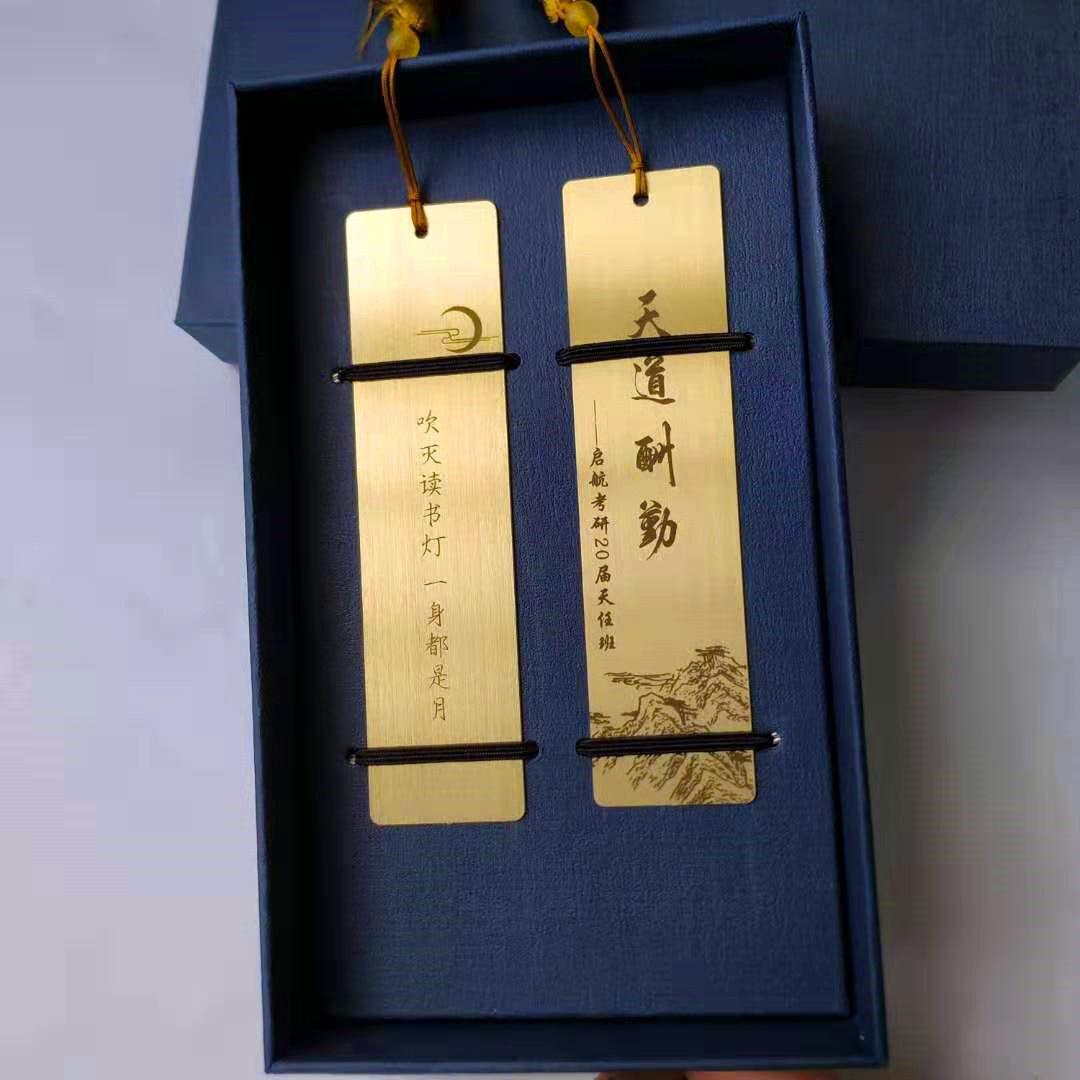 吹灭读书灯 一身都是月
天道酬勤
——启航考研20届天任班